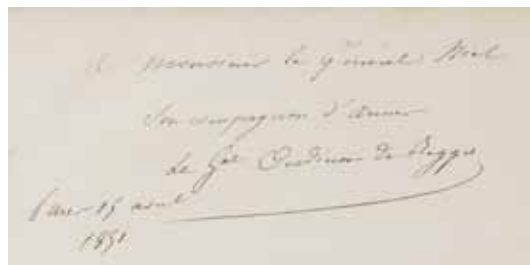 A Monsieur le Général Niel
Son compagnon d'Armes
Le Gal Oudinot de Reggio
Paris 15 avril
1851